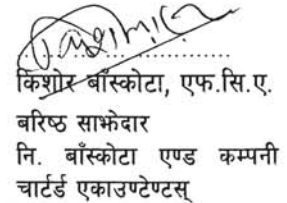 किशोर बाँस्कोटा, एफ.सि.ए.
बरिष्ठ साझेदार
नि. बाँस्कोटा एण्ड कम्पनी
चार्टर्ड एकाउण्टेण्टस्